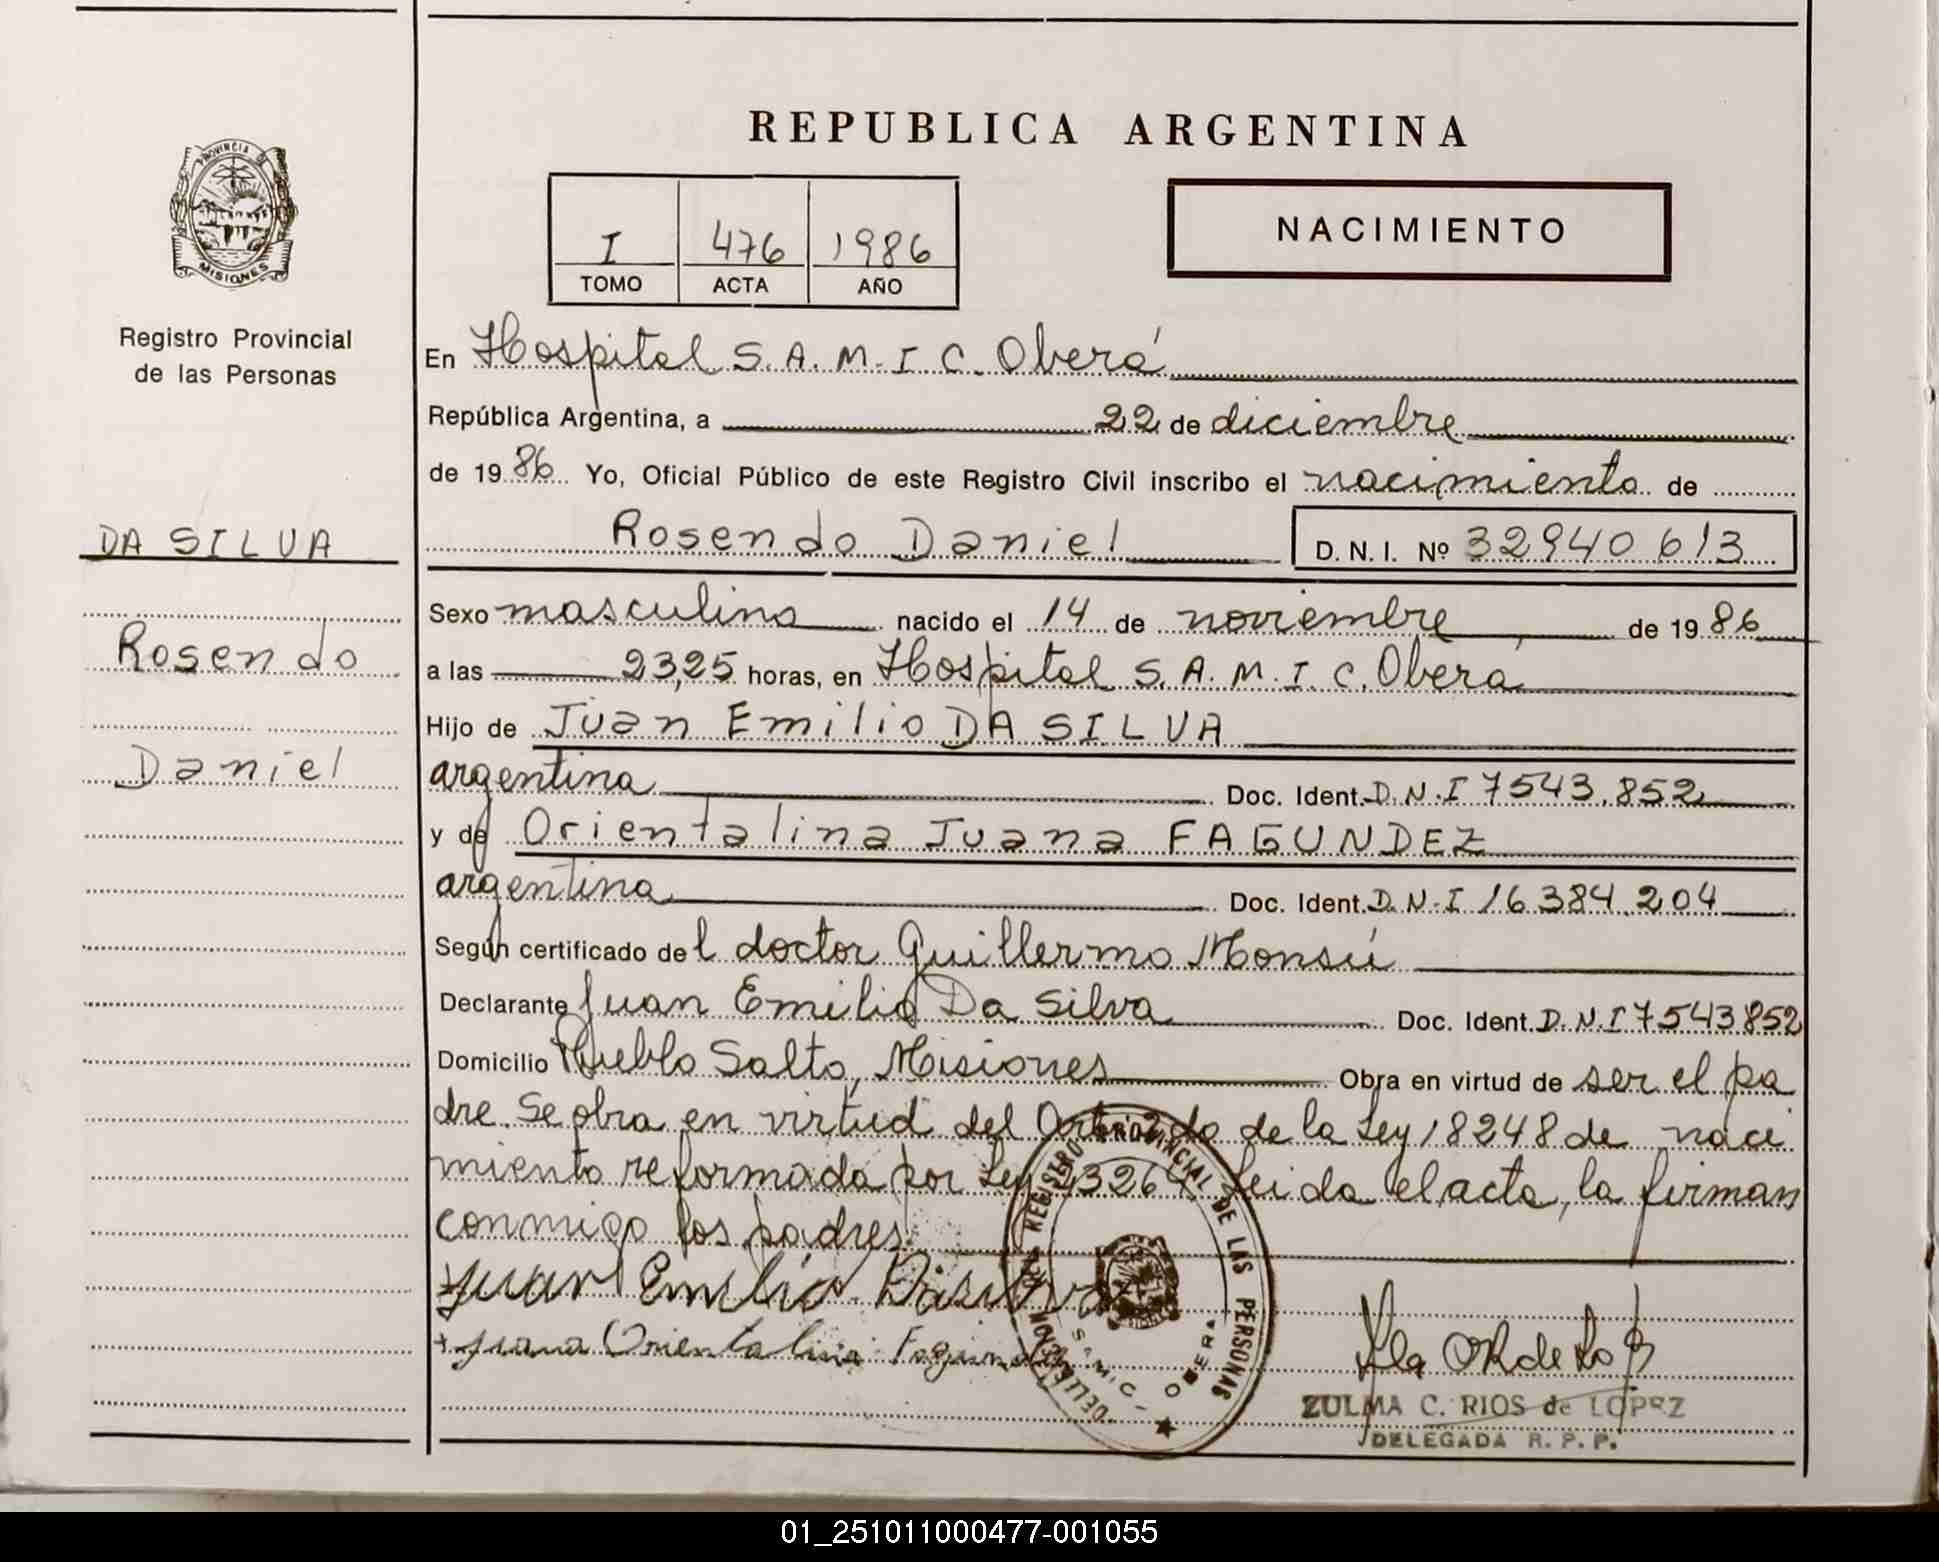 REPUBLICA ARGENTINA
PROVINCIA DE
MISIONES
Registro Provincial
de las Personas
DA SILVA
Rosendo
Daniel
I 476 1986
TOMO ACTA AÑO
NACIMIENTO
En Hospital S.A.M.I.C. Oberá
República Argentina, a 22 de diciembre
de 1986 Yo, Oficial Público de este Registro Civil inscribo el nacimiento de
Rosendo Daniel D.N.I. Nº 32940613
Sexo masculino nacido el 14 de noviembre de 1986
a las 23,25 horas, en Hospital S.A.M.I.C. Oberá
Hijo de Juan Emilio DA SILVA
argentina Doc. Ident. D.N.I 7543.852
y de Orientalina Juana FAGUNDEZ
argentina Doc. Ident. D.N.I 16.384.204
Según certificado del doctor Guillermo Monsú
Declarante Juan Emilio Da Silva Doc. Ident. D.N.I 7543852
Domicilio Pueblo Salto, Misiones Obra en virtud de ser el pa
dre. Se obra en virtud del Art. 2do de la Ley 18248 de naci
miento reformada por Ley 23264 Leida el acta, la firman
conmigo los padres.
Juan Emilio Dasilva
Juana Orientalina Fagundez
REGISTRO PROVINCIAL DE LAS PERSONAS
SAMIC - OBERA
ZULMA C. RIOS de LOPEZ
DELEGADA R. P. P.
01_251011000477-001055